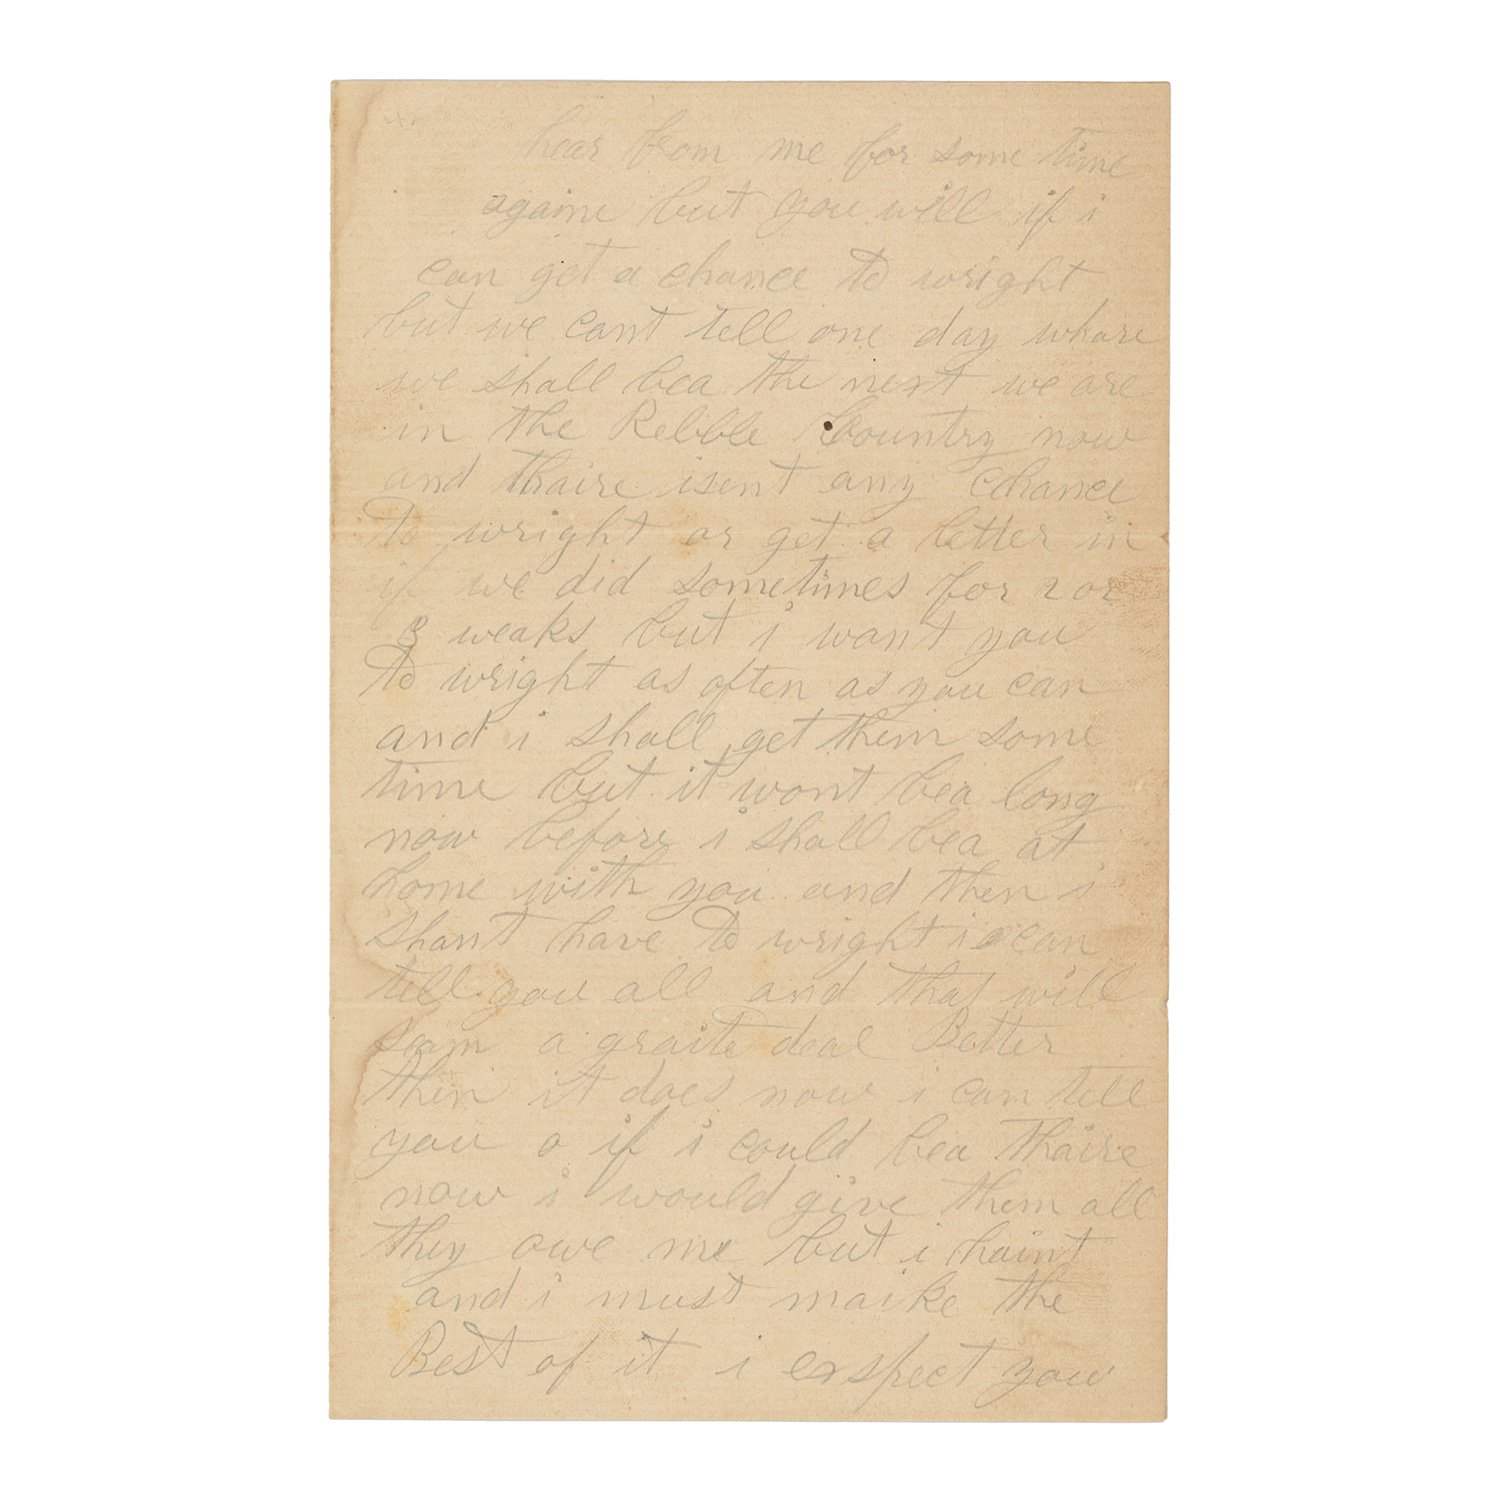 hear from me for some time
againe but you will if i
can get a chance to wright
but we cant tell one day whare
we shall bea the next we are
in the Rebble Country now
and thaire isent any chance
to wright or get a letter in
if we did sometimes for 2 or
3 weaks but i want you
to wright as often as you can
and i shall get them some
time but it wont bea long
now before i shall bea at
home with you and then i
shant have to wright i can
tell you all and that will
seam a graite deal Better
then it does now i can tell
you o if i could bea thaire
now i would give them all
they owe me but i haint
and i must maike the
Best of it i exspect you